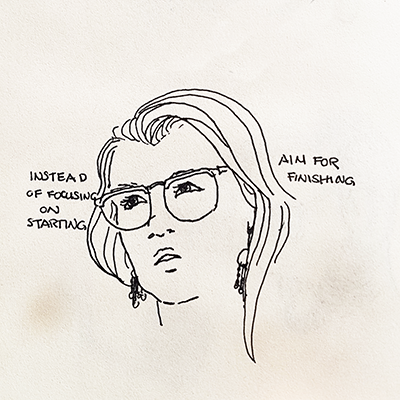 INSTEAD
OF FOCUSING
ON
STARTING
AIM FOR
FINISHING